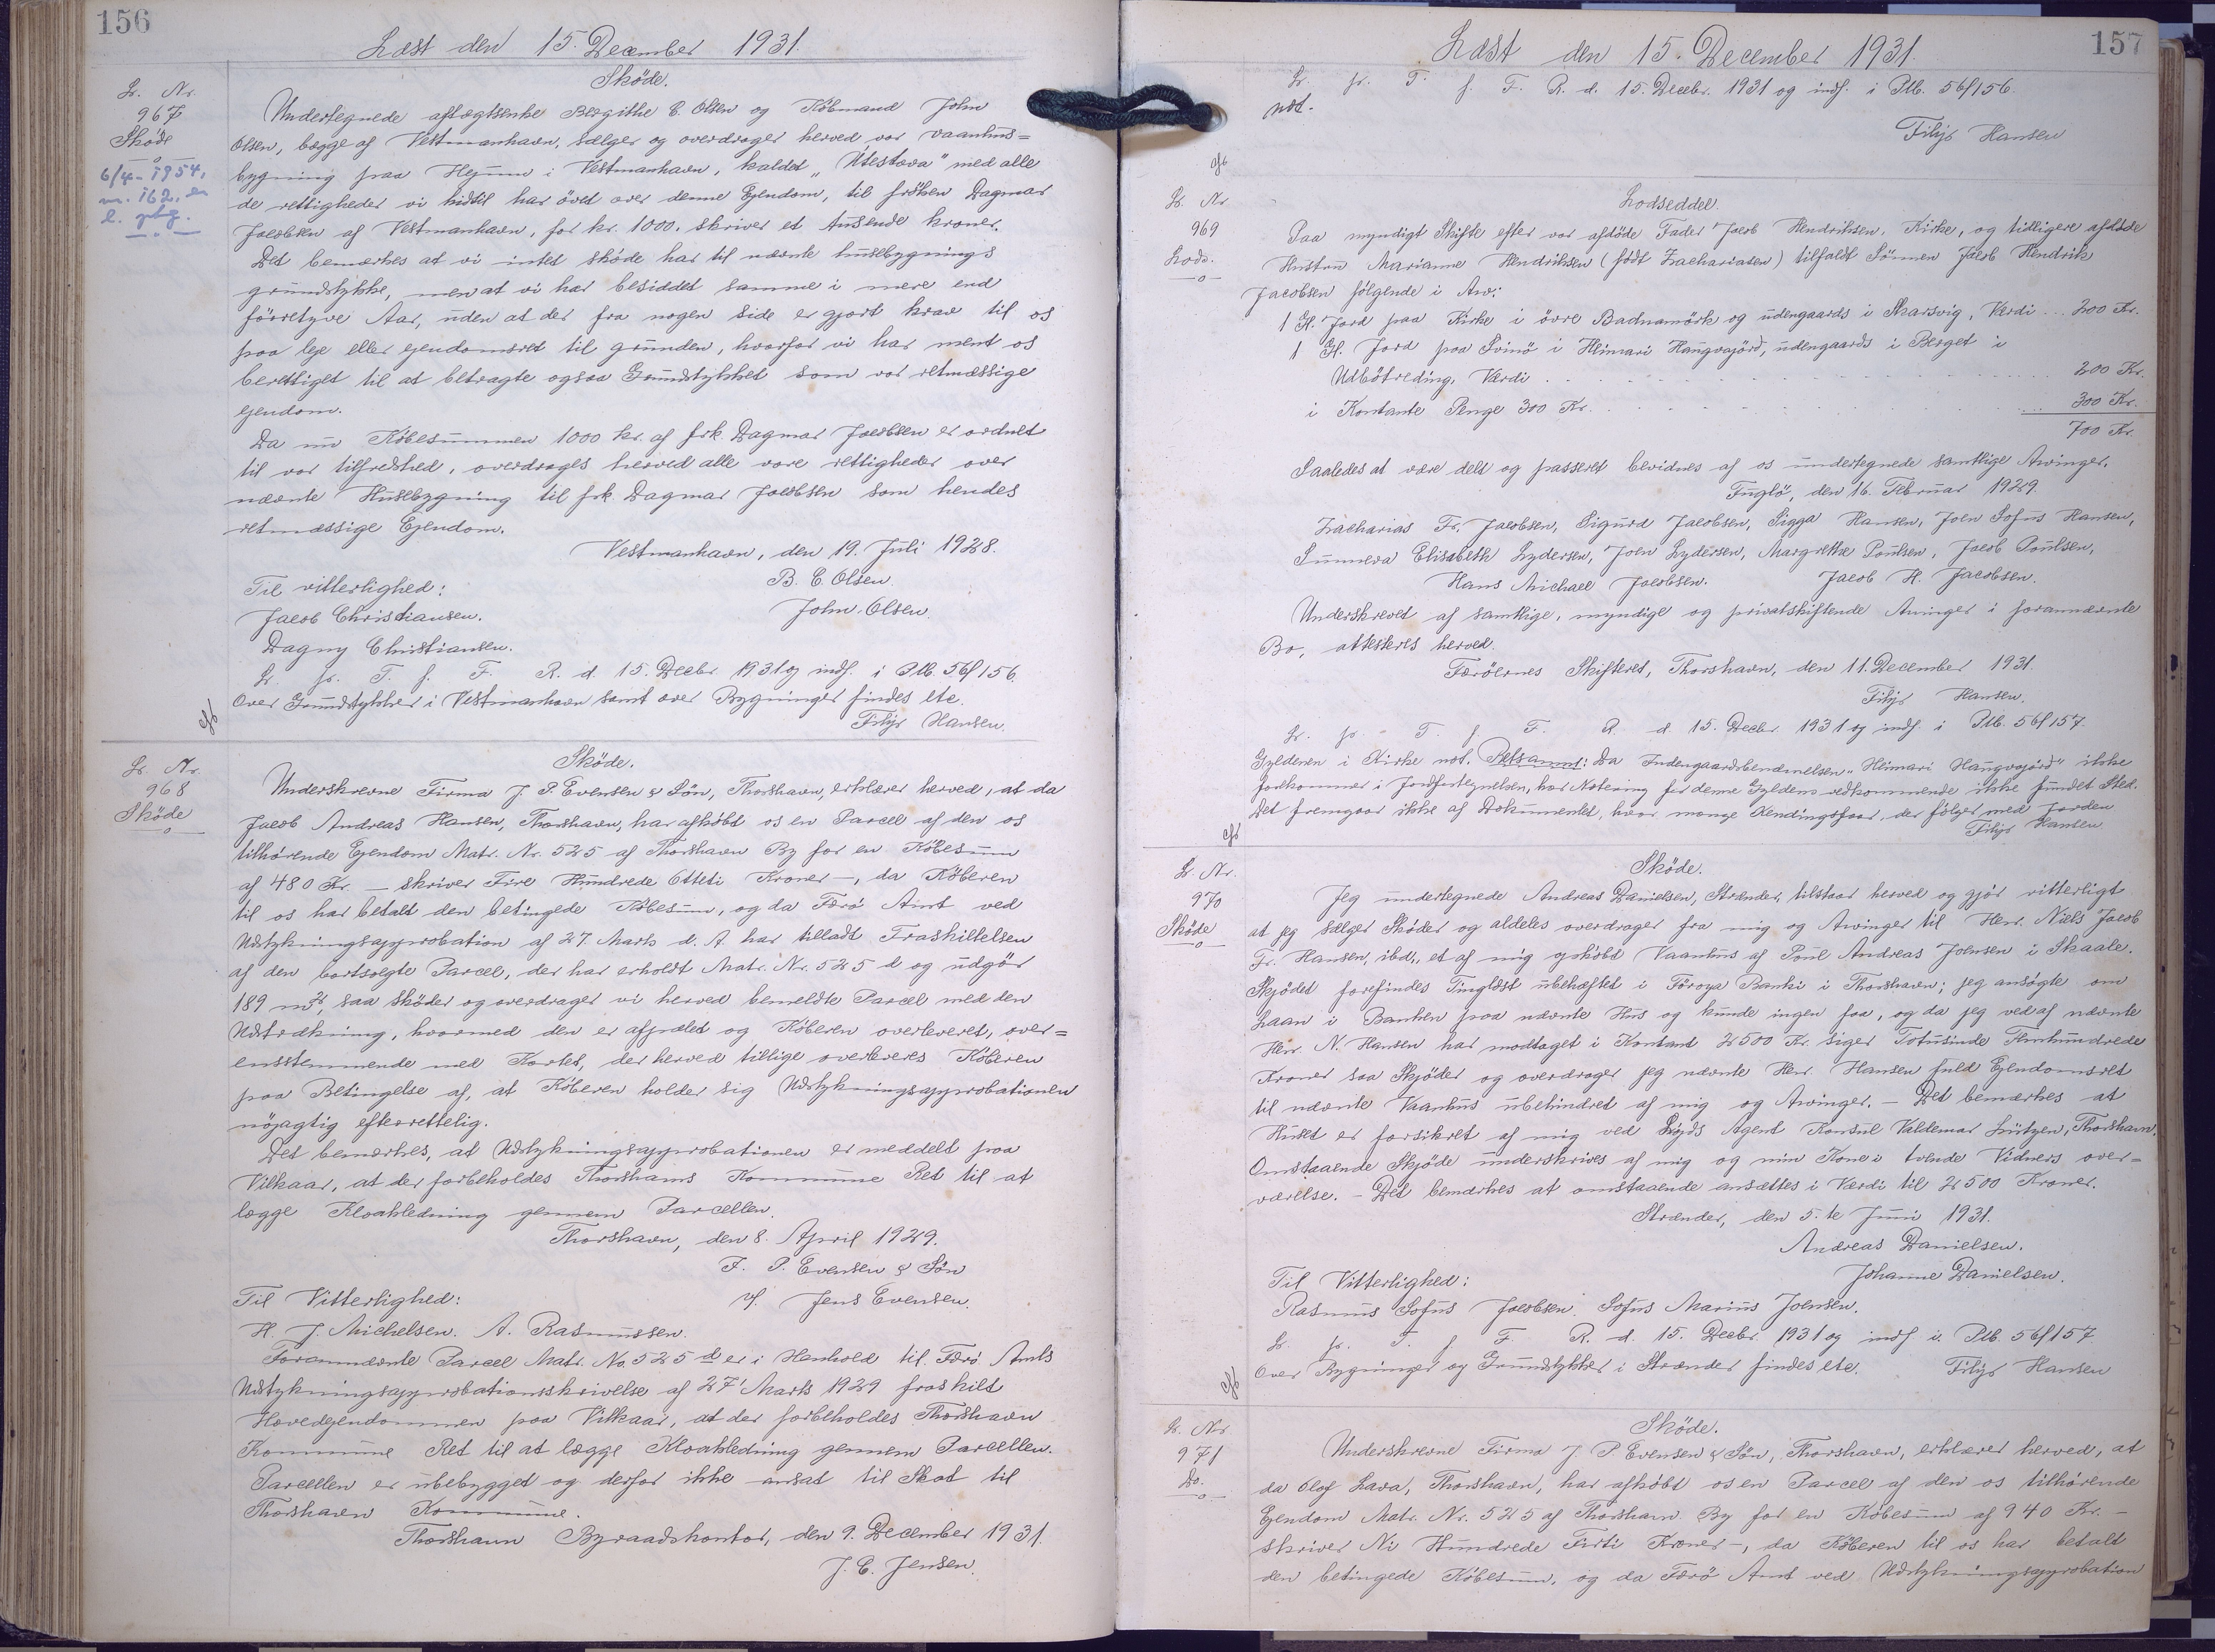 156
Læst den 15. December 1931.
L. Nr.
967
Sköde
6/4-1954,
nr. 162, en
l. pbg.
Sköde.
Undertegnede aftægtsenke Bergithe C. Olsen og Købmand John
Olsen, begge af Vestmanhavn, sælger og overdrager herved vor vaanhus=
bygning paa Hejum i Vestmanhavn, kaldet „Útistova" med alle
de rettigheder vi hidtil har övet over denne Ejendom, til fröken Dagmar
Jacobsen af Vestmanhavn, for kr. 1000. skriver et tusende kroner.
Det bemærkes at vi intet sköde har til nævnte husebygnings
grundstykke, men at vi har besiddet samme i mere end
förretyve Aar, uden at der fra nogen side er gjort krav til os
paa leje eller ejendomsret til grunden, hvorfor vi har ment os
berettiget til at betragte ogsaa Grundstykket som vor retmæssige
ejendom.
Da nu Købesummen 1000 kr. af frk. Dagmar Jacobsen er ordnet
til vor tilfredshed, overdrages herved alle vore rettigheder over
nævnte Husebygning til frk. Dagmar Jacobsen som hendes
retmæssige Ejendom.
Vestmanhavn, den 19. Juli 1928.
Til vitterlighed: B. C. Olsen.
Jacob Christiansen. John Olsen.
Dagny Christiansen.
L. p. T. f. F. R. d. 15. Decbr 1931 og indf. i Ptb. 56f 156.
Over Grundstykker i Vestmanhavn samt over Bygninger findes etc.
Filip Hansen.
L. Nr.
968
Sköde
Sköde.
Underskrevne Firma J. P. Evensen & Søn, Thorshavn, erklærer herved, at da
Jacob Andreas Hansen, Thorshavn, har afkøbt os en Parcel af den os
tilhørende Ejendom Matr. Nr. 525 af Thorshavn By for en Købesum
af 480 Kr. — skriver Fire Hundrede Otteti Kroner —, da Køberen
til os har betalt den betingede Købesum, og da Færö Amt ved
Udstykningsapprobation af 27. Marts d. A. har tilladt Fraskillelsen
af den bortsolgte Parcel, der har erholdt Matr. Nr. 525 d og udgör
189 m², saa sköder og overdrager vi herved bemeldte Parcel med den
Udstrækning, hvormed den er afpælet og Køberen overleveret, over=
ensstemmende med Kortet, der herved tillige overleveres Køberen
paa Betingelse af, at Køberen holder sig Udstykningsapprobationen
nöjagtig efterrettelig.
Det bemærkes, at Udstykningsapprobationen er meddelt paa
Vilkaar, at der forbeholdes Thorshavns Kommune Ret til at
lægge Kloakledning gennem Parcellen.
Thorshavn, den 8. April 1929.
J. P. Evensen & Søn
Til Vitterlighed: v/. Jens Evensen.
H. J. Michelsen. A. Rasmussen.
Forannævnte Parcel Matr. No. 525 d er i Henhold til Færö Amts
Udstykningsapprobationsskrivelse af 27' Marts 1929 fraskilt
Hovedejendommen paa Vilkaar, at der forbeholdes Thorshavn
Kommune Ret til at lægge Kloakledning gennem Parcellen.
Parcellen er ubebygget og derfor ikke ansat til Skat til
Thorshavn Kommune.
Thorshavn Byraadskontor, den 9. December 1931.
J. C. Jensen.
157
Læst den 15. December 1931.
L. p. T. f. F. R. d. 15. Decbr. 1931 og indf. i Ptb. 56f 156.
not.
Filip Hansen
L. Nr
969
Lods.
Lodseddel.
Paa myndigt Skifte efter vor afdöde Fader Jacob Hendriksen, Kirke, og tidligere afdöde
Hustru Marianne Hendriksen (født Zachariasen) tilfaldt Sönnen Jacob Hendrik
Jacobsen fölgende i Arv:
1 Gl. Jord paa Kirke i övre Badnamörk og udengaards i Skarsvig, Værdi ... 200 Kr.
1 Gl. Jord paa Svinö i Heimari Haugvajörd, udengaards i Berget i
Udbötreding, Værdi . . . 200 Kr.
i Kontante Penge 300 Kr. . . . 300 Kr.
700 Kr.
Saaledes at være delt og passeret bevidnes af os undertegnede samtlige Arvinger.
Fuglö, den 16. Februar 1929.
Zacharias Fr. Jacobsen, Sigurd Jacobsen, Sigga Hansen, Joen Sofus Hansen,
Sunneva Elisabeth Lydersen, Joen Lydersen, Margrethe Poulsen, Jacob Poulsen,
Hans Michael Jacobsen. Jacob H. Jacobsen.
Underskrevet af samtlige, myndige og privatskiftende Arvinger i forannævnte
Bo, attesteres herved.
Færöernes Skifteret, Thorshavn, den 11. December 1931.
Filip Hansen.
L. p. T. f. F. R. d. 15. Decbr. 1931 og indf. i Ptb. 56f 157.
Gyldenen i Kirke not. Retsanm: Da Indengaardsbenævnelsen „Heimari Haugvajörd" ikke
forekommer i Jordfortegnelsen, har Notering for denne Gyldens vedkommende ikke fundet Sted.
Det fremgaar ikke af Dokumentet, hvor mange Kendingsfaar, der følger med Jorden
Filip Hansen
L. Nr.
970
Sköde
Sköde.
Jeg undertegnede Andreas Danielsen, Strænder, tilstaar herved og gjör vitterligt
at jeg sælger Sköder og aldeles overdrager fra mig og Arvinger til Herr. Niels Jacob
Fr. Hansen, ibd., et af mig opköbt Vaanhus af Poul Andreas Joensen i Skaale.
Skjödet forefindes Tinglæst ubehæftet i Föroya Banki i Thorshavn; jeg ansögte om
Laan i Banken paa nævnte Hus og kunde ingen faa, og da jeg ved af nævnte
Herr. N. Hansen har modtaget i Kontant 2500 Kr. siger Totusinde Femhundrede
Kroner saa Skjöder og overdrager jeg nævnte Herr. Hansen fuld Ejendomsret
til nævnte Vaanhus ubehindret af mig og Arvinger. — Det bemærkes at
Huset er forsikret af mig ved Lloyds Agent Konsul Valdemar Lützen, Thorshavn.
Omstaaende Skjöde underskrives af mig og min Kone i tvende Vidners over=
værelse. — Det bemærkes at omstaaende ansættes i Værdi til 2500 Kroner.
Strænder, den 5. te Juni 1931.
Andreas Danielsen.
Til Vitterlighed: Johanne Danielsen.
Rasmus Sofus Jacobsen. Sofus Marius Joensen.
L. p. T. f. F. R. d. 15. Decbr. 1931 og indf. i Ptb. 56f 157
Over Bygninger og Grundstykker i Strænder findes etc. Filip Hansen
L. Nr
971
Do.
Sköde.
Underskrevne Firma J. P. Evensen & Søn, Thorshavn, erklærer herved, at
da Olof Lava, Thorshavn, har afkøbt os en Parcel af den os tilhørende
Ejendom Matr. Nr. 525 af Thorshavn By for en Købesum af 940 Kr. —
skriver Ni Hundrede Firti Kroner —, da Køberen til os har betalt
den betingede Købesum, og da Færö Amt ved Udstykningsapprobation